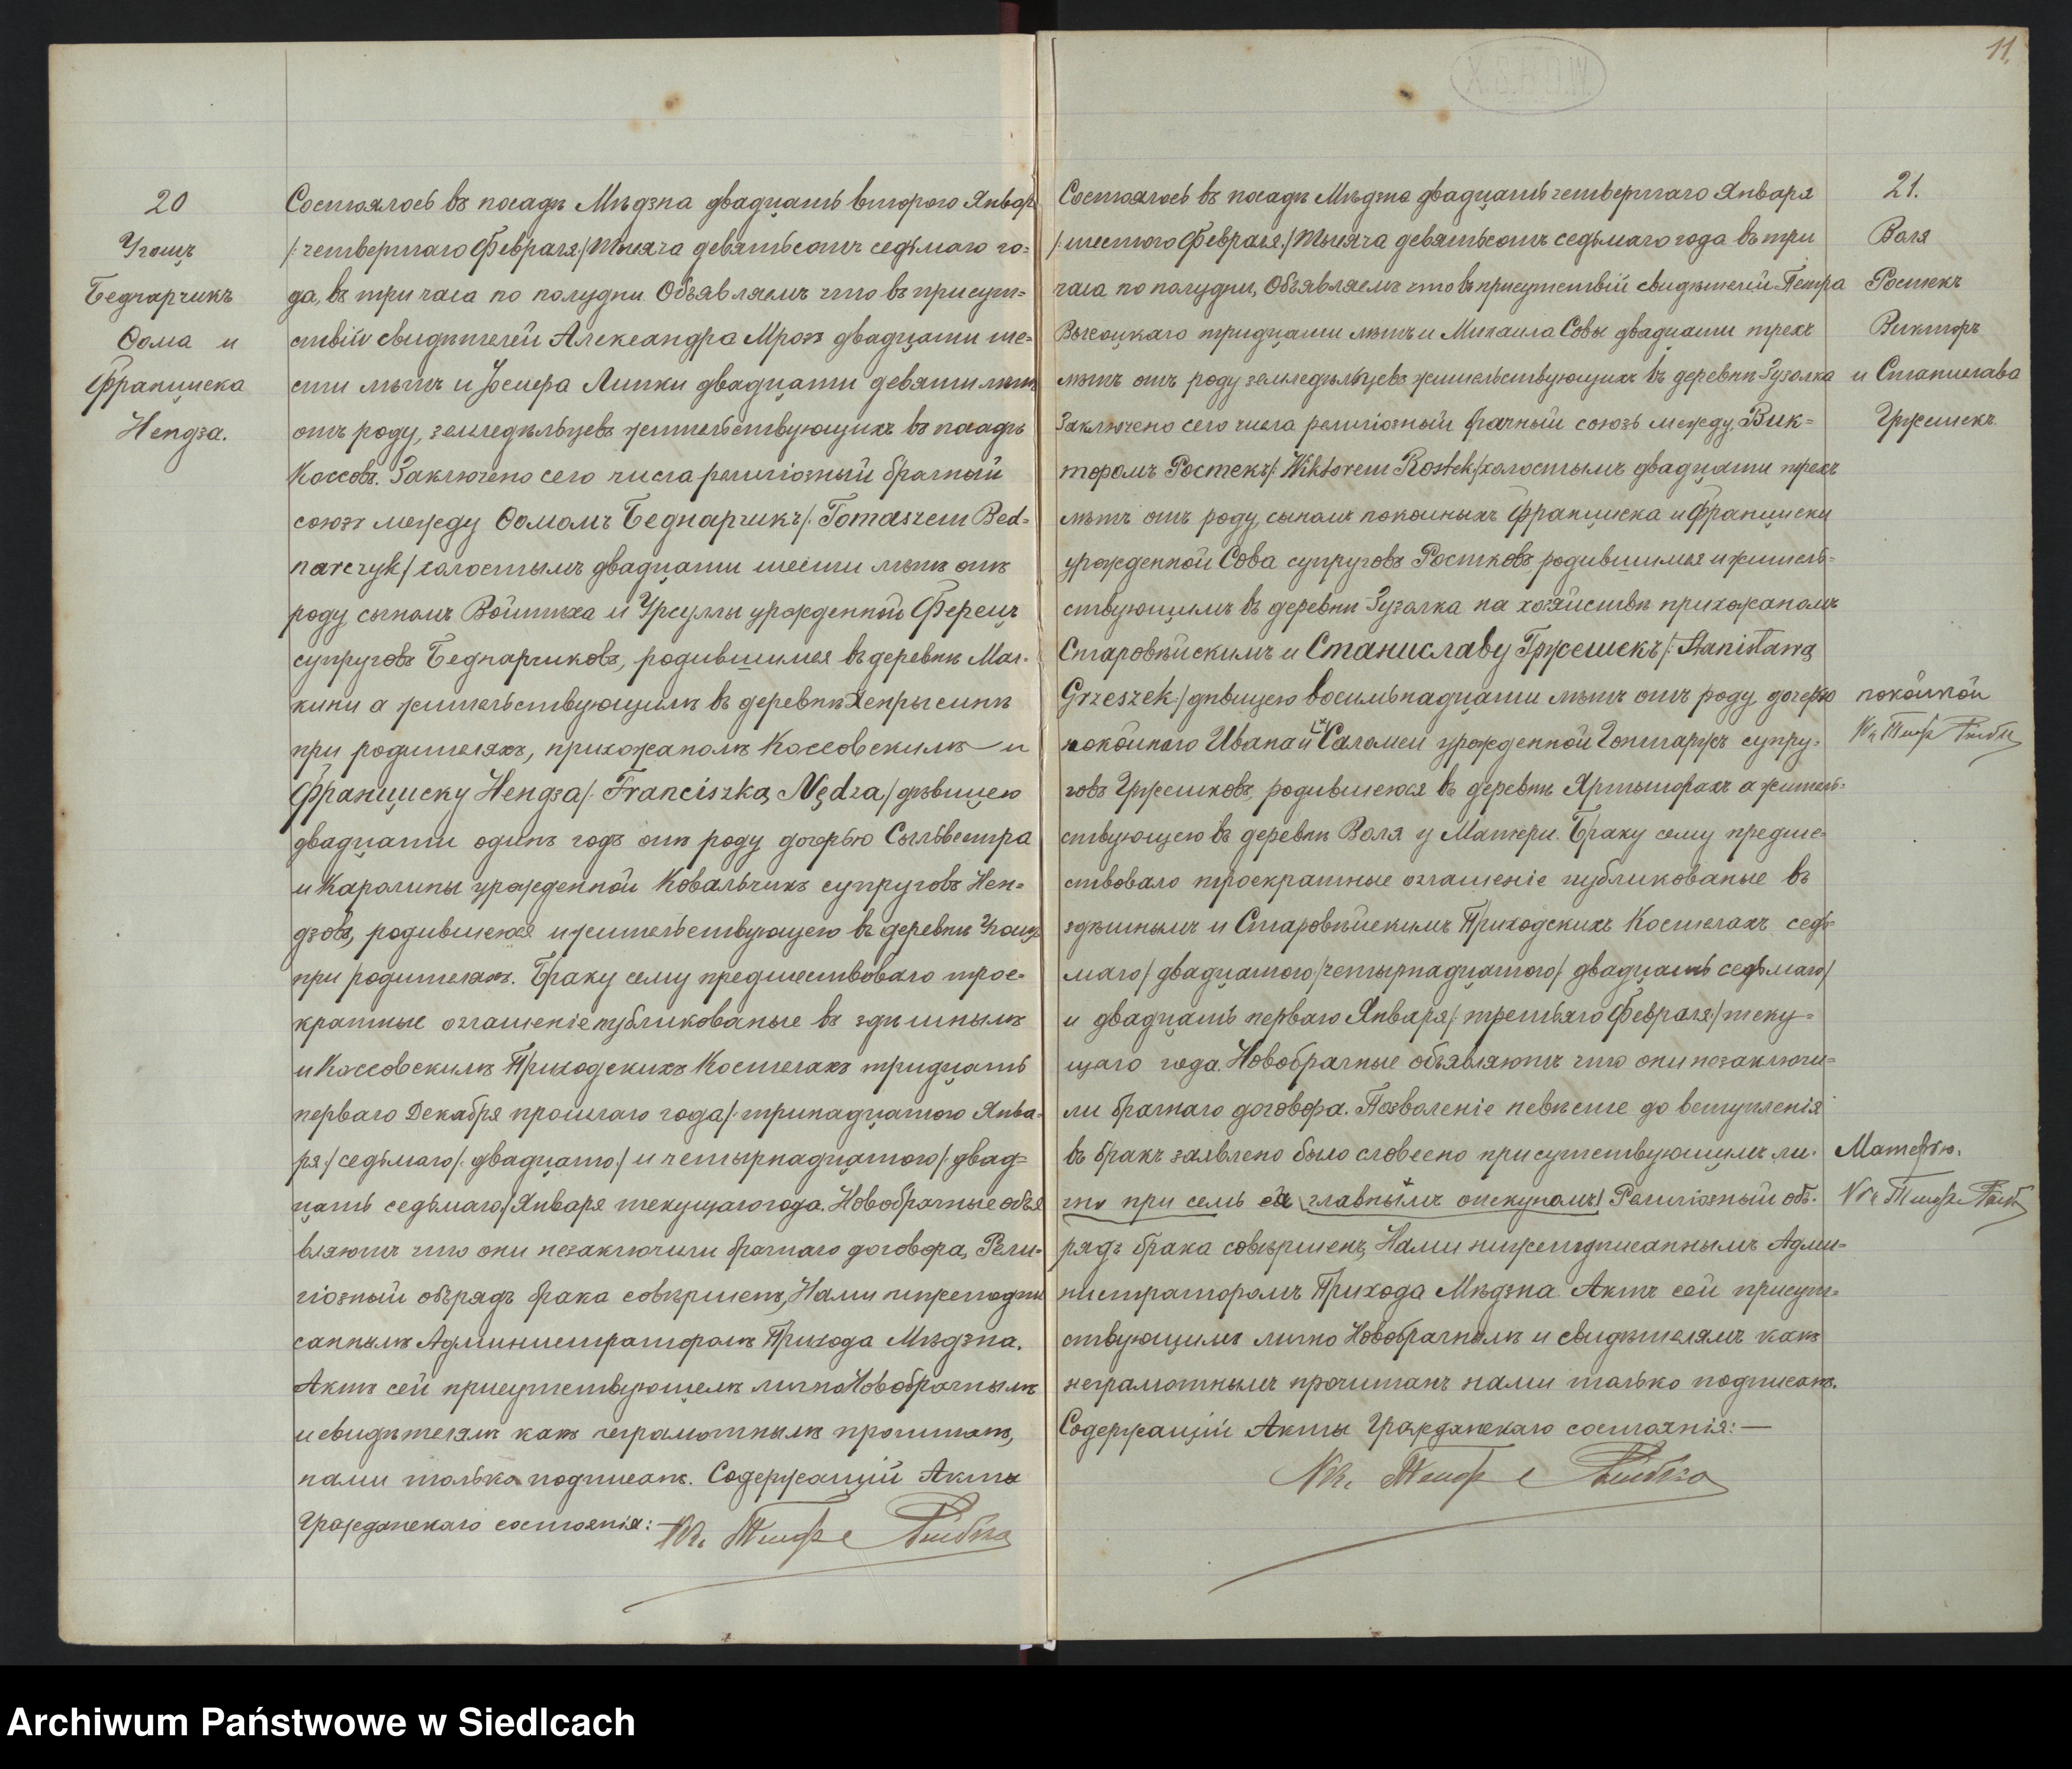 11.
20
Угощ
Беднарчикъ
Ѳома и
Францишка
Нендза.
Состоялось въ посадѣ Мѣдзна двадцать второго Январ
/: четвертаго Февраля:/ Тысяча девятьсотъ седьмаго го=
да, въ три часа по полудни. Объявляемъ что въ присут=
ствіи свидѣтелей Александра Мроз двадцати ше=
сти лѣтъ и Іосифа Липки двадцати девяти лѣтъ
отъ роду, земледѣльцевъ жительствующихъ въ посадѣ
Коссовъ. Заключено сего числа религіозный брачный
союзъ между Ѳомомъ Беднарчикъ /: Tomaszem Bed=
narczyk / холостымъ двадцати шести лѣтъ отъ
роду сыномъ Войтѣха и Урсуллы урожденной Ференц
супруговъ Беднарчиковъ, родившимся въ деревнѣ Мал.
кини а жительствующимъ въ деревнѣ
при родителяхъ, прихожаномъ Коссовскимъ и
Францишку Нендза /: Franciszką Nędza / дѣвицею
двадцати одинъ годъ отъ роду дочерью Сыльвестра
и Каролины урожденной Ковальчикъ супруговъ Нен=
дзовъ, родившеюся и жительствующею въ деревнѣ Угощ
при родителяхъ. Браку сему предшествовало трое=
кратные оглашеніе публикованые въ здѣшнымъ
и Коссовскимъ Приходскихъ Костелахъ тридцать
перваго Декабря прошлаго года /: тринадцатого Янва=
ря:/ седьмаго /: двадцато:/ и четырнадцатого /: двад=
цать седьмаго:/ Января текущаго года. Новобрачные объя
вляютъ что они незаключили брачнаго договора, Рели=
гіозный обърядъ брака совѣршенъ, Нами нижеподпи
саннымъ Администраторомъ Прихода Мѣдзна.
Актъ сей присутствующемъ лично Новобрачнымъ
и свидѣтелямъ какъ неграмотнымъ прочитанъ,
нами только подписанъ. Содержащій Акты
Гражданскаго состоянія:
Состоялось въ посадѣ Мѣдзна двадцать четвертаго Января
/: шестого Февраля:/ Тысяча девятьсотъ седьмаго года въ три
часа по полудни, Объявляемъ что въ присутствіи свидѣтелей Петра
Высоцкаго тридцати лѣтъ и Михаила Совы двадцати трехъ
лѣтъ отъ роду земледѣльцевъ жительствующихъ въ деревнѣ Гузалка
Заключено сего числа религіозный брачный союзъ между Вик=
торомъ Ростекъ /: Wiktorem Rostek / холостымъ двадцати трехъ
лѣтъ отъ роду, сыномъ покойныхъ Францишка и Францишки
урожденной Сова супруговъ Ростковъ родившимся и житель=
ствующимъ въ деревнѣ Гузалка на хозяйствѣ прихожаномъ
Старовѣйскимъ и Станиславу Гржешекъ /: Stanisławą
Grzeszek:/ дѣвицею восимьнадцати лѣтъ отъ роду, дочерью
покойнаго Ивана и Саломеи урожденной Гонтаржъ супру=
говъ Гржешковъ, родившеюся въ деревнѣ Яртыпорахъ а житель=
ствующею въ деревнѣ Воля у Матери. Браку сему предше=
ствовало троекратные оглашеніе публикованые въ
здѣшнымъ и Старовѣйскимъ Приходскихъ Костелахъ седь=
маго / двадцатого / четырнадцатого /: двадцать седьмаго /
и двадцать перваго Января /: третьяго Февраля:/ теку=
щаго года. Новобрачные объявляютъ что они незаключи=
ли брачнаго договора. Позволеніе невѣсте до вступленія
въ бракъ заявлено было словесно присутствующимъ ли.
чно при семъ ея главнымъ опекуномъ Религіозный объ.
рядъ брака совѣршенъ, Нами нижеподписаннымъ Адми=
нистраторомъ Прихода Мѣдзна. Актъ сей присут=
ствующимъ лично Новобрачнымъ и свидѣтелямъ какъ
неграмотнымъ прочитанъ нами только подписанъ.
Содержащій Акты Гражданскаго состоянія: —
21.
Воля
Ростекъ
Викторъ
и Станислава
Гржешекъ
покойной
Матерью.
Archiwum Państwowe w Siedlcach